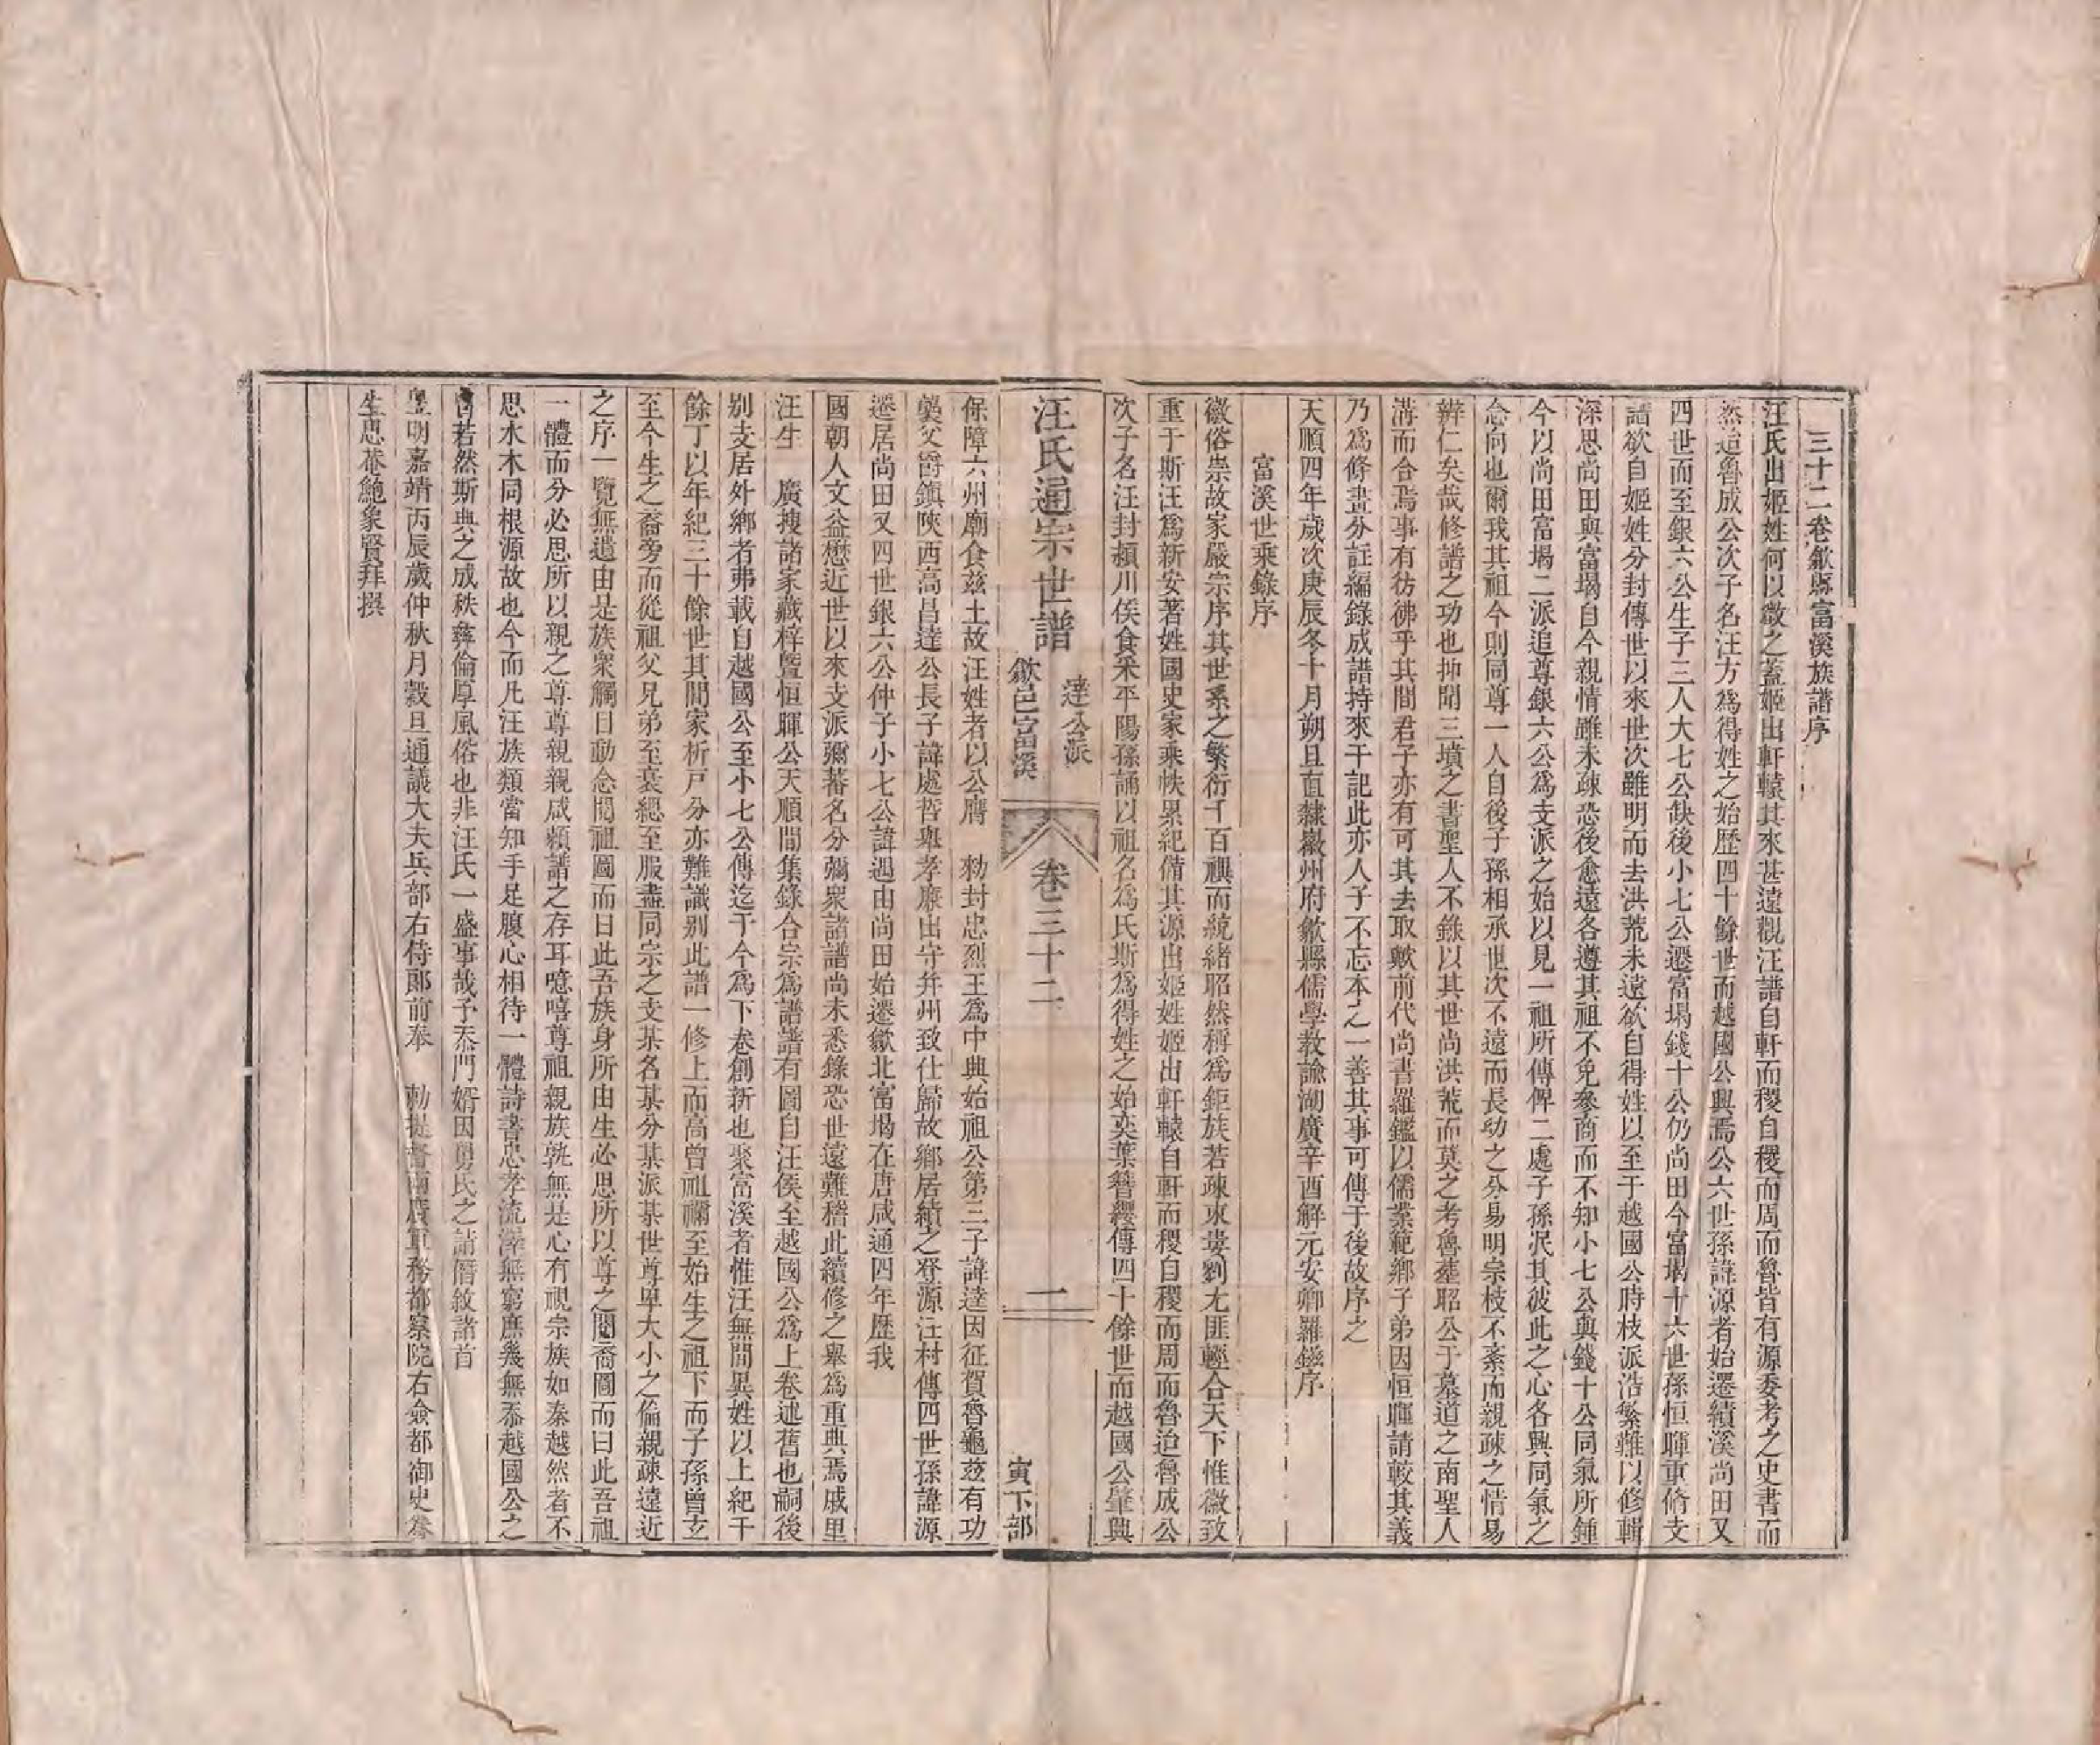 三十二卷歙縣富溪族譜序
汪氏出姬姓何以徵之蓋姬出軒轅其來甚遠觀汪譜自軒而稷自稷而周而魯皆有源委考之史書而
然迨魯成公次子名汪方為得姓之始歷四十餘世而越國公興焉公六世孫諱源者始遷績溪尚田又
四世而至銀六公生子三人大七公缺後小七公遷富堨錢十公仍尚田今富堨十六世孫恒暉重脩支
譜欲自姬姓分封傳世以來世次雖明而去洪荒未遠欲自得姓以至于越國公時枝派浩繁難以修輯
深思尚田與富堨自今親情雖未疎恐後愈遠各遵其祖不免參商而不知小七公與錢十公同氣所鍾
今以尚田富堨二派追尊銀六公為支派之始以見一祖所傳俾二處子孫泯其彼此之心各興同氣之
念向也爾我其祖今則同尊一人自後子孫相承世次不遠而長幼之分易明宗枝不紊而親疎之情易
辨仁矣哉修譜之功也抑聞三墳之書聖人不錄以其世尚洪荒而莫之考魯塟昭公于墓道之南聖人
溝而合焉事有彷彿乎其間君子亦有可其去取歟前代尚書羅鑑以儒業範鄉子弟因恒暉請較其義
乃為條晝分註編錄成譜持來干記此亦人子不忘本之一善其事可傳于後故序之
天順四年歲次庚辰冬十月朔旦直隸徽州府歙縣儒學教諭湖廣辛酉解元安鄉羅鎡序
富溪世乘錄序
徽俗崇故家嚴宗序其世系之繁衍千百禩而統緒昭然稱為鉅族若疎東婁劉尢匪輕合天下惟徽致
重于斯汪為新安著姓國史家乘帙累紀備其源出姬姓姬出軒轅自軒而稷自稷而周而魯迨魯成公
次子名汪封潁川侯食采平陽孫誦以祖名為氏斯為得姓之始奕葉簪纓傳四十餘世而越國公肇興
汪氏通宗世譜
達公派
歙邑富溪
卷三十二
一
寅下部
保障六州廟食茲土故汪姓者以公膺 勑封忠烈王為中興始祖公第三子諱達因征賀魯龜玆有功
襲父爵鎮陝西高昌達公長子諱處哲舉孝廉出守并州致仕歸故鄉居績之登源汪村傳四世孫諱源
遷居尚田又四世銀六公仲子小七公諱遇由尚田始遷歙北富堨在唐咸通四年歷我
國朝人文益懋近世以來支派彌蕃名分彌衆諸譜尚未悉錄恐世遠難稽此續修之舉為重典焉戚里
汪生 廣搜諸家藏梓暨恒暉公天順間集錄合宗為譜譜有圖自汪侯至越國公為上卷述舊也嗣後
别支居外鄉者弗載自越國公至小七公傳迄于今為下卷創新也聚富溪者惟汪無間異姓以上紀千
餘丁以年紀三十餘世其間家析戸分亦難識别此譜一修上而高曾祖禰至始生之祖下而子孫曾玄
至今生之裔旁而從祖父兄弟至衰緦至服盡同宗之支某名某分某派某世尊卑大小之倫親疎遠近
之序一覽無遺由是族衆觸目動念閱祖圖而曰此吾族身所由生必思所以尊之閱裔圖而曰此吾祖
一體而分必思所以親之尊尊親親咸頼譜之存耳噫嘻尊祖親族孰無是心有視宗族如秦越然者不
思水木同根源故也今而凡汪族類當知手足腹心相待一體詩書忠孝流澤無窮庶幾無忝越國公之
胄若然斯典之成秩彞倫厚風俗也非汪氏一盛事哉予忝門婿因舅氏之請僭敘諸首
皇明嘉靖丙辰歲仲秋月穀旦通議大夫兵部右侍郎前奉 勅提督兩廣軍務都察院右僉都御史眷
生思菴鮑象賢拜撰